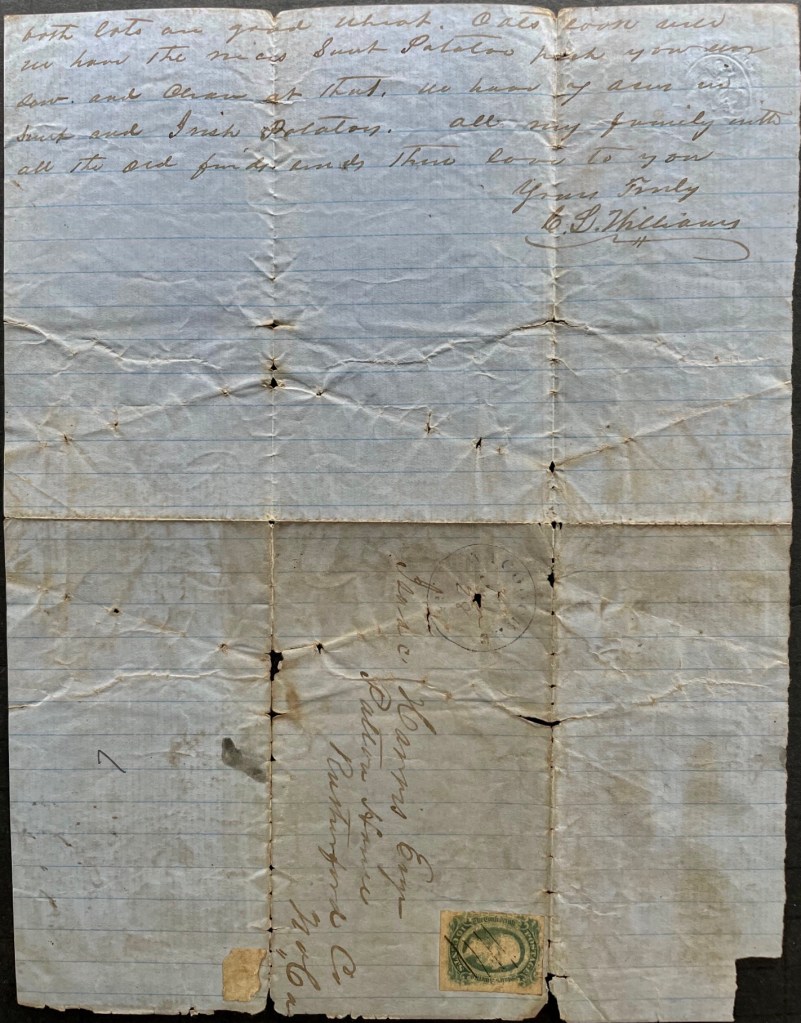 both lots are good wheat. Oats look well
we have the nices Sweet Potatoe you ever
Saw. and Clean at that. we have 7 acres in
Sweet and Irish Potatoes. All my family with
all the old friends sends there love to you
Yours Truly
C. L. Williams
Harris Esqr
Patton Home
Rutherford Co
No Ca